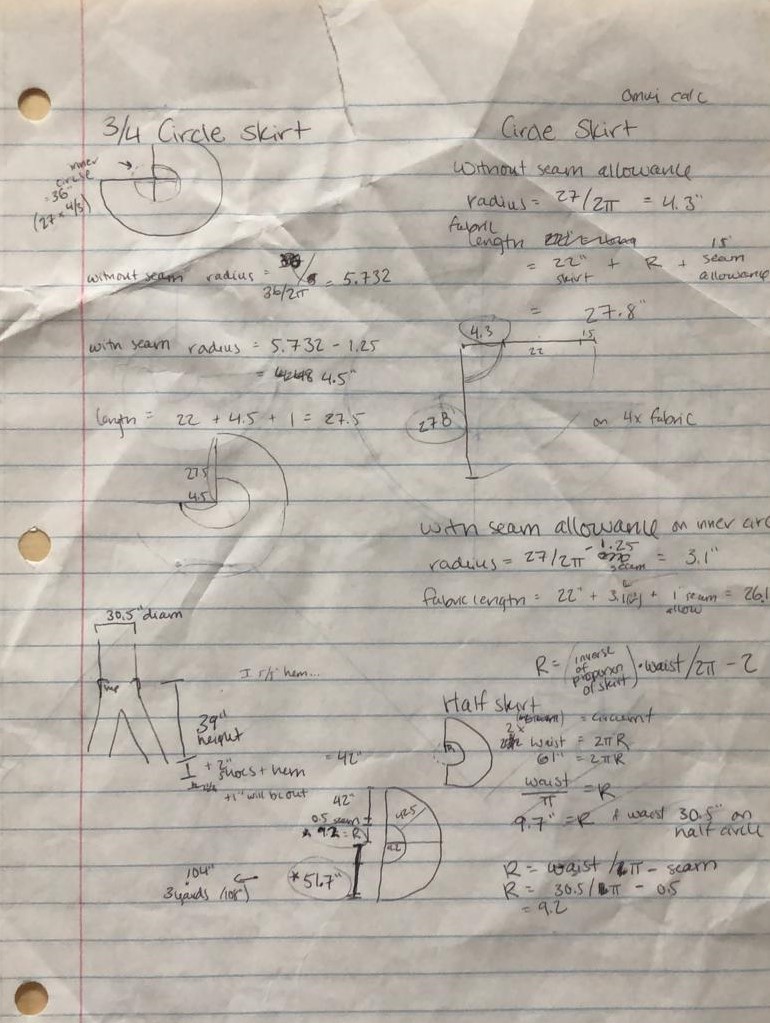 omni calc
3/4 Circle Skirt
inner
circle
= 36"
(27 x 4/3)
without seam radius = 36/2π = 5.732
with seam radius = 5.732 - 1.25
= 4.5"
length = 22 + 4.5 + 1 = 27.5
27.5
4.5
Circle Skirt
Without seam allowance
radius = 27/2π = 4.3"
fabric
length
= 22" + R + 1.5" seam
skirt allowance
= 27.8"
4.3
22
1.5
27.8
on 4x fabric
With seam allowance on inner circ
radius = 27/2π - 1.25 = 3.1"
seam
fabric length = 22" + 3.1 + 1 seam = 26.1
allow
30.5" diam
39"
height
+ 2"
shoes + hem = 42"
+1" will be out
R = (inverse of proportion of skirt) · waist/2π - 2
Half skirt
= circumf
2x
waist = 2πR
61" = 2πR
waist/π = R
9.7" = R
waist 30.5" on
half circle
R = waist/π - seam
R = 30.5/π - 0.5
= 9.2
42"
0.5 seam
9.2 = R
42.5
9.2
*51.7"
104"
3 yards (108")